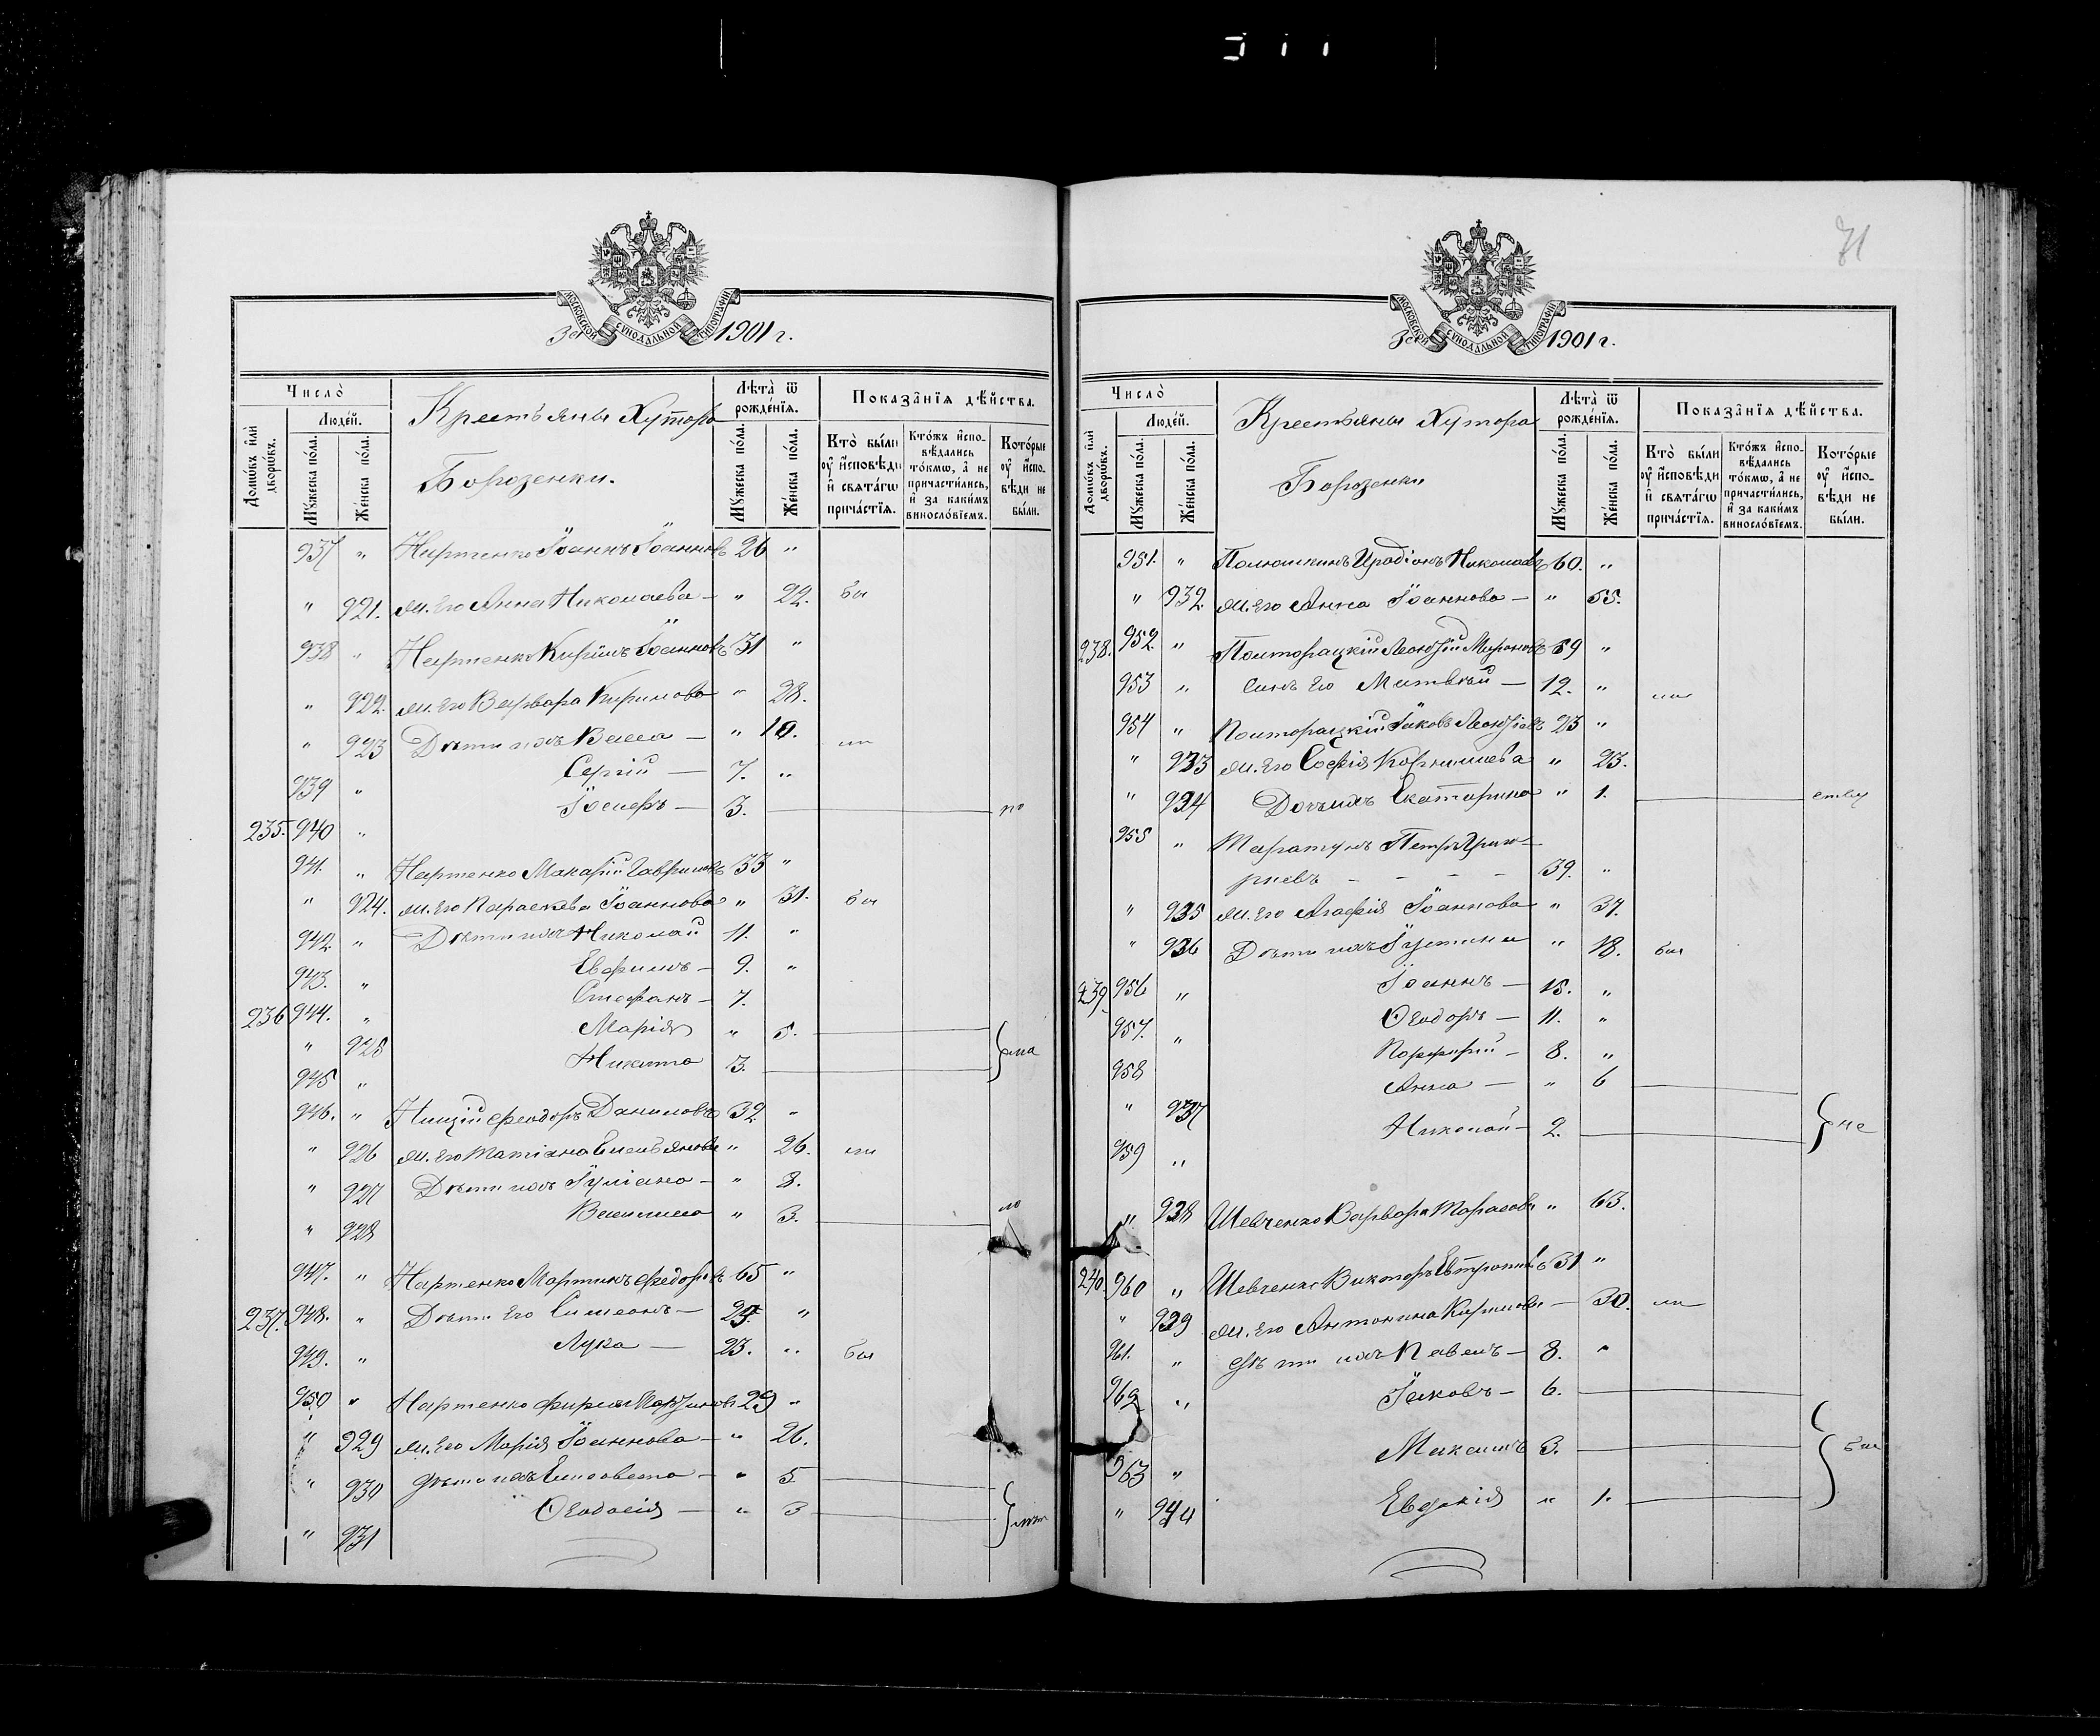 МОСКОВСКОЙ СѴНОДАЛЬНОЙ ТИПОГРАФІИ
За 1901 г.
Число̀
Люде́й.
Домѡ́въ и҆лѝ дворѡ́въ.
Мꙋ́жеска по́ла.
Же́нска по́ла.
Крестьяны Хутора
Борозенки.
Лѣта̀ ѿ рожде́нїѧ.
Мꙋ́жеска по́ла.
Же́нска по́ла.
Показа̑нїѧ дѣ́йства.
Кто̀ бы́ли оу҆ и҆́сповѣди и҆ свѧта́гѡ прича́стїѧ.
Кто́жъ и҆спо-вѣ́дались то́кмѡ, а҆ не причасти́лись, и҆ за каки́мъ винословїемъ.
Кото́рые оу҆ и҆спо-вѣди не бы́ли.
937 " Нартенко Іоаннъ Іоанновъ 26 "
" 921. ж. его Анна Николаева — " 22. бы
938 " Нартенко Кириллъ Іоанновъ 31 "
" 922. ж. его Варвара Кирилова " 28.
" 923 Дѣти ихъ Васса — " 10. ли
939 " Сергій — 7. "
235. 940 " Іосифъ — 3.
941. " Нартенко Макарій Гавриловъ 33 "
" 924. ж. его Параскева Іоаннова " 31. бы
942. " Дѣти ихъ Николай 11. "
943. " Евфимъ — 9. "
236 944. " Стефанъ — 7.
" 925 Марія " 5.
945 " Никита 3.
946. " Нищій Феодоръ Даниловъ 32 "
" 926 ж. его Татіана Емельянова " 26. ли
" 927 Дѣти ихъ Іуліана — " 8.
" 928 Василиса " 3.
947. " Нартенко Мартинъ Федоровъ 65 "
237. 948. " Дѣти его Симеонъ — 25. "
949. " Лука — 23. " бы
950 " Нартенко Фирсъ Мартиновъ 29 "
" 929 ж. его Марія Іоаннова — " 26.
" 930 Дѣти ихъ Елисавета — " 5
" 931 Ѳеодосія — " 3
71
МОСКОВСКОЙ СѴНОДАЛЬНОЙ ТИПОГРАФІИ
За 1901 г.
Число̀
Люде́й.
Домѡ́въ и҆лѝ дворѡ́въ.
Мꙋ́жеска по́ла.
Же́нска по́ла.
Крестьяны Хутора
Борозенки
Лѣта̀ ѿ рожде́нїѧ.
Мꙋ́жеска по́ла.
Же́нска по́ла.
Показа̑нїѧ дѣ́йства.
Кто̀ бы́ли оу҆ и҆́сповѣди и҆ свѧта́гѡ прича́стїѧ.
Кто́жъ и҆спо-вѣ́дались то́кмѡ, а҆ не причасти́лись, и҆ за каки́мъ винословїемъ.
Кото́рые оу҆ и҆спо-вѣди не бы́ли.
951. " Иродіонъ Николаевъ 60. "
" 932. ж. его Анна Іоаннова — " 55.
238. 952. " Полторацкій Мироновъ 59 "
953 " Сынъ его Матвѣй — 12. " ли
954 " Полторацкій Іаковъ 23 "
" 933 ж. его Софія Корнилиева " 23.
" 934 Дочь ихъ Екатерина " 1.
955 " Таратунъ Петръ Григо-
ріевъ — — — — 39. "
" 935 ж. его Агафія Іоаннова " 37.
" 936 Дѣти ихъ Іустина " 18. бы
239. 956 " Іоаннъ — 15. "
957. " Ѳеодоръ — 11. "
958 Порфирій — 8. "
" 937 Анна — " 6
959 " Николай — 2. не
" 938 Шевченко Варвара Тарасова " 63.
240. 960 " Шевченко Викторъ Евтропіевъ 31 "
" 939 ж. его Антонина Кирилова — 30. ли
961. " Дѣти ихъ Павелъ — 8. "
962 " Іаковъ — 6.
963 " Максимъ 3.
" 940 Евдокія " 1.